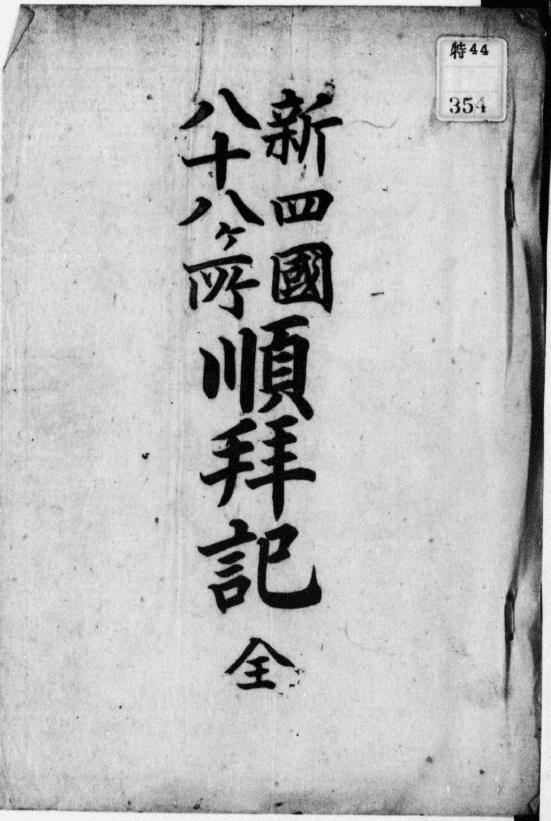 特44
354
新四國
八十八ヶ所
順拜記
全